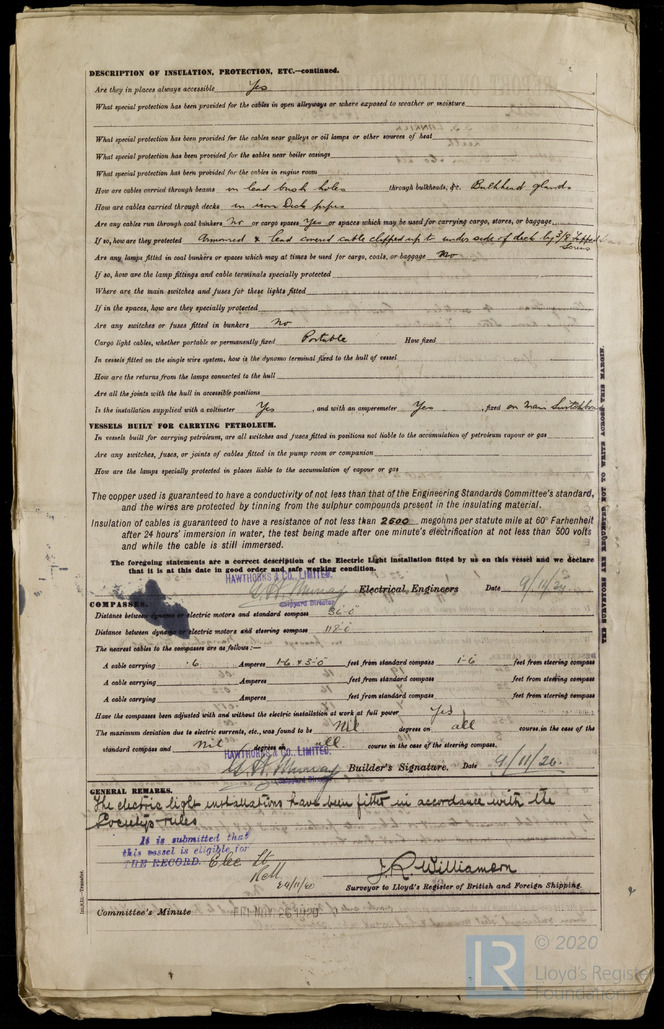 DESCRIPTION OF INSULATION, PROTECTION, ETC.—continued.
Are they in places always accessible Yes
What special protection has been provided for the cables in open alleyways or where exposed to weather or moisture
What special protection has been provided for the cables near galleys or oil lamps or other sources of heat
What special protection has been provided for the cables near boiler casings
What special protection has been provided for the cables in engine room
How are cables carried through beams in lead bush holes through bulkheads, &c. Bulkhead glands
How are cables carried through decks in iron Deck pipes
Are any cables run through coal bunkers No or cargo spaces Yes or spaces which may be used for carrying cargo, stores, or baggage
If so, how are they protected Armoured & lead covered cable clipped up to under side of deck by 3/8 Tapped
Screws
Are any lamps fitted in coal bunkers or spaces which may at times be used for cargo, coals, or baggage No
If so, how are the lamp fittings and cable terminals specially protected
Where are the main switches and fuses for these lights fitted
If in the spaces, how are they specially protected
Are any switches or fuses fitted in bunkers No
Cargo light cables, whether portable or permanently fixed Portable How fixed
In vessels fitted on the single wire system, how is the dynamo terminal fixed to the hull of vessel
How are the returns from the lamps connected to the hull
Are all the joints with the hull in accessible positions
Is the installation supplied with a voltmeter Yes, and with an amperemeter Yes, fixed on Main Switchboa
VESSELS BUILT FOR CARRYING PETROLEUM.
In vessels built for carrying petroleum, are all switches and fuses fitted in positions not liable to the accumulation of petroleum vapour or gas
Are any switches, fuses, or joints of cables fitted in the pump room or companion
How are the lamps specially protected in places liable to the accumulation of vapour or gas
The copper used is guaranteed to have a conductivity of not less than that of the Engineering Standards Committee's standard,
and the wires are protected by tinning from the sulphur compounds present in the insulating material.
Insulation of cables is guaranteed to have a resistance of not less than 2500 megohms per statute mile at 60° Farhenheit
after 24 hours' immersion in water, the test being made after one minute's electrification at not less than 500 volts
and while the cable is still immersed.
The foregoing statements are a correct description of the Electric Light installation fitted by us on this vessel and we declare
that it is at this date in good order and safe working condition.
HAWTHORNS & CO., LIMITED.
Murray Electrical Engineers Date 9/11/20
Shipyard Director
COMPASSES.
Distance between dynamo or electric motors and standard compass 36-0
Distance between dynamo or electric motors and steering compass
The nearest cables to the compasses are as follows:—
A cable carrying .6 Amperes 1-6 & 5-0 feet from standard compass 1-6 feet from steering compass
A cable carrying Amperes feet from standard compass feet from steering compass
A cable carrying Amperes feet from standard compass feet from steering compass
Have the compasses been adjusted with and without the electric installation at work at full power Yes
The maximum deviation due to electric currents, etc., was found to be Nil degrees on all course, in the case of the
standard compass and Nil degrees on all course in the case of the steering compass.
HAWTHORNS & CO., LIMITED.
Murray Builder's Signature. Date 9/11/20.
Shipyard Director
GENERAL REMARKS.
The electric light installations have been fitted in accordance with the
Society's rules
It is submitted that
this vessel is eligible for
THE RECORD. Elec Lt
24/11/20
J. R. Williamson
Surveyor to Lloyd's Register of British and Foreign Shipping.
Committee's Minute FRI. NOV. 26 1920
THE SURVEYORS ARE REQUESTED NOT TO WRITE ACROSS THIS MARGIN.
© 2020
LR
Lloyd's Registe
Foundation